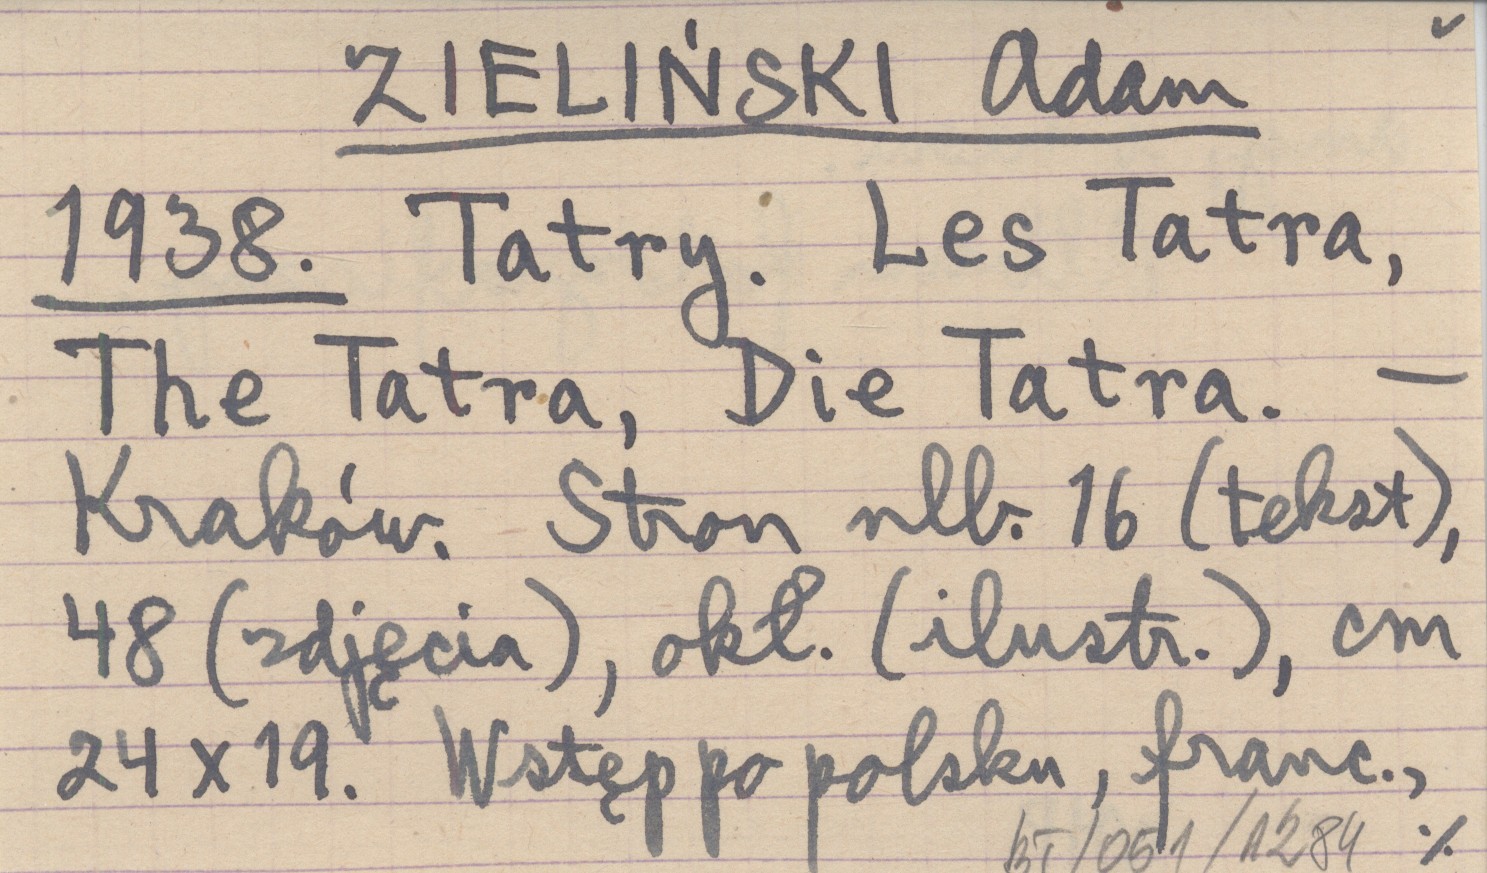 ZIELIŃSKI Adam
1938. Tatry. Les Tatra,
The Tatra, Die Tatra. —
Kraków. Stron nlb. 16 (tekst),
48 (zdjęcia), okł. (ilustr.), cm
24 x 19. Wstęp po polsku, franc.,
BT/051/A284 ./.